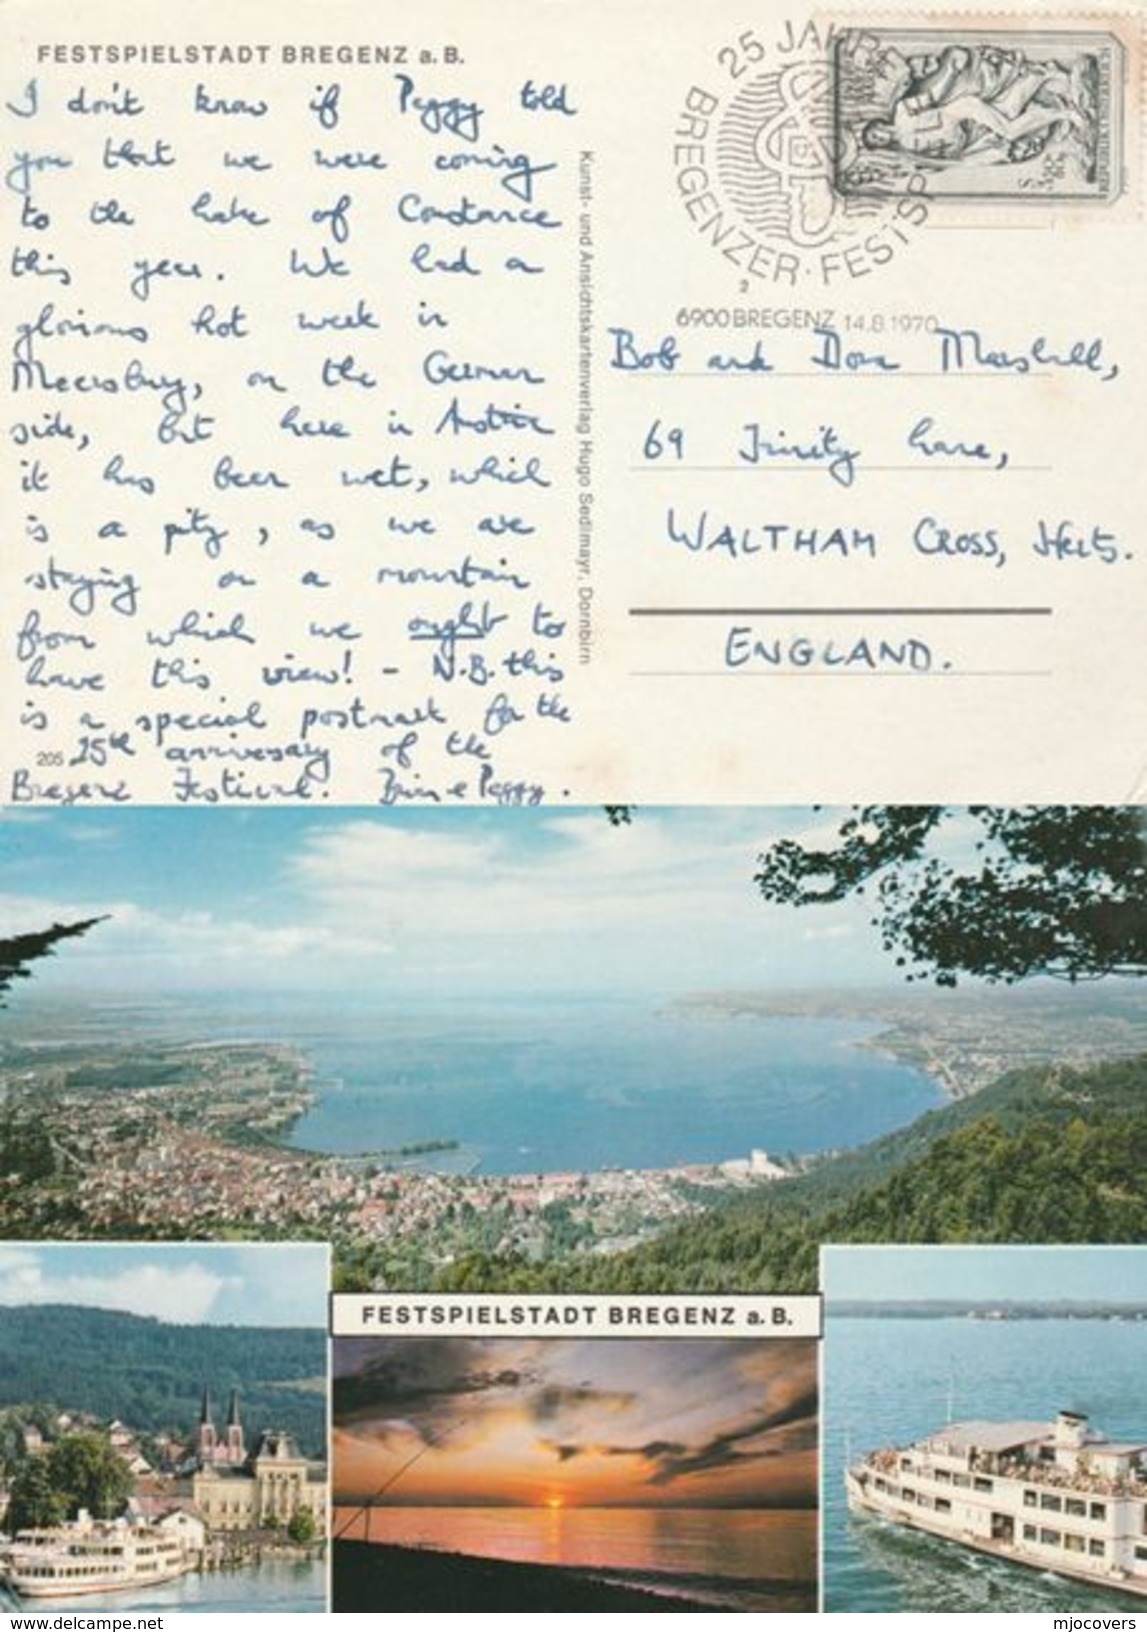 FESTSPIELSTADT BREGENZ a. B.
I don't know if Peggy told
you that we were coming
to the Lake of Constance
this year. We had a
glorious hot week in
Meersburg, on the German
side, but here in Austria
it has been wet, which
is a pity, as we are
staying on a mountain
from which we ought to
have this view! - N.B. this
is a special postmark for the
205 25th anniversary of the
Bregenz Festival. Brian & Peggy.
Kunst- und Ansichtskartenverlag Hugo Sedlmayr, Dornbirn
25 JAHRE
BREGENZER · FESTSP
2
6900 BREGENZ 14.8.1970
Bob and Dora Marshall,
69 Trinity Lane,
WALTHAM CROSS, Herts.
ENGLAND.
FESTSPIELSTADT BREGENZ a. B.
www.delcampe.net
mjocovers